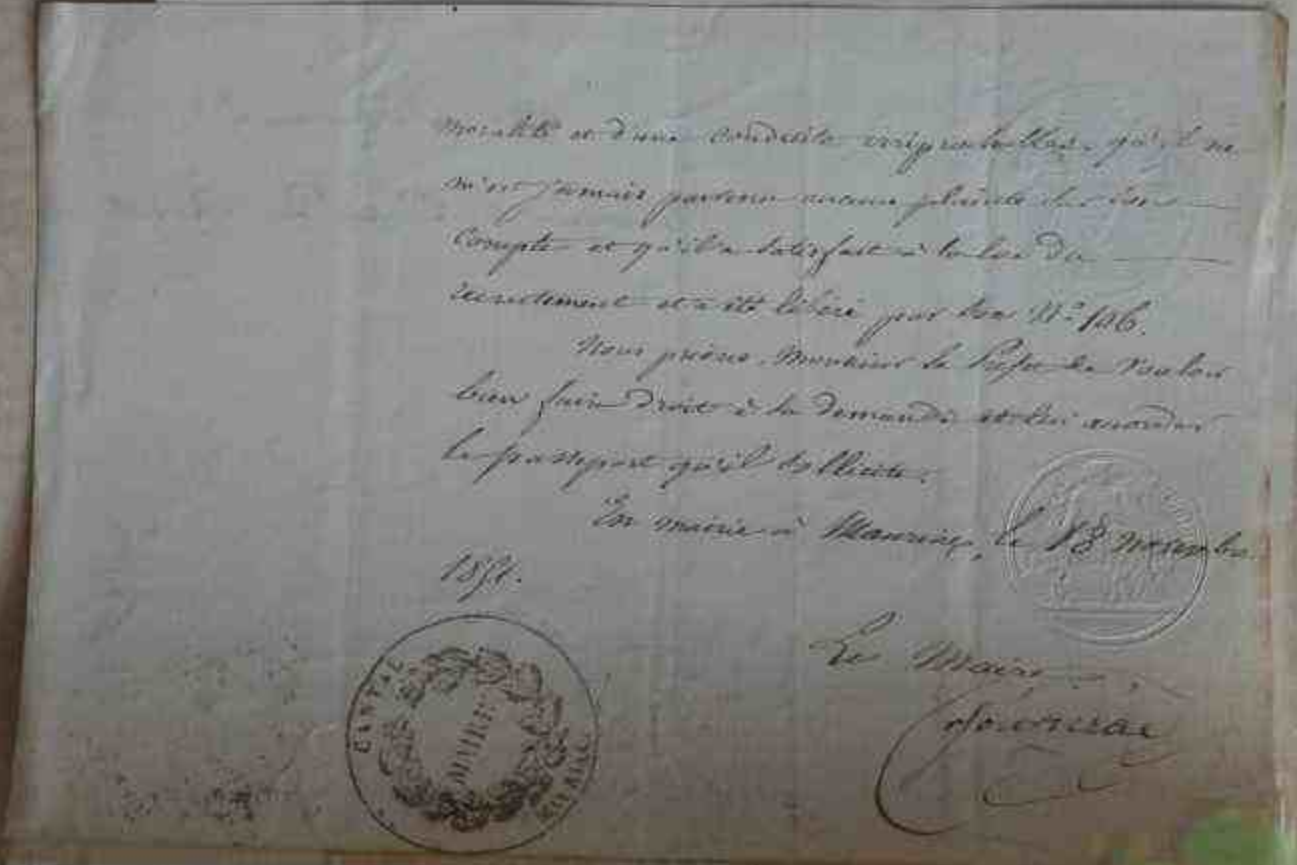 moralité et d'une conduite irréprochable, qu'il ne
m'est jamais parvenu aucune plainte sur son
compte et qu'il a satisfait à la loi du
recrutement et a été libéré par son N° 106.
Nous prions Monsieur le Préfet de vouloir
bien faire droit à sa demande et lui accorder
le passeport qu'il sollicite.
En mairie à le 18 novembre
Le Maire
CANTAL
MAIRIE